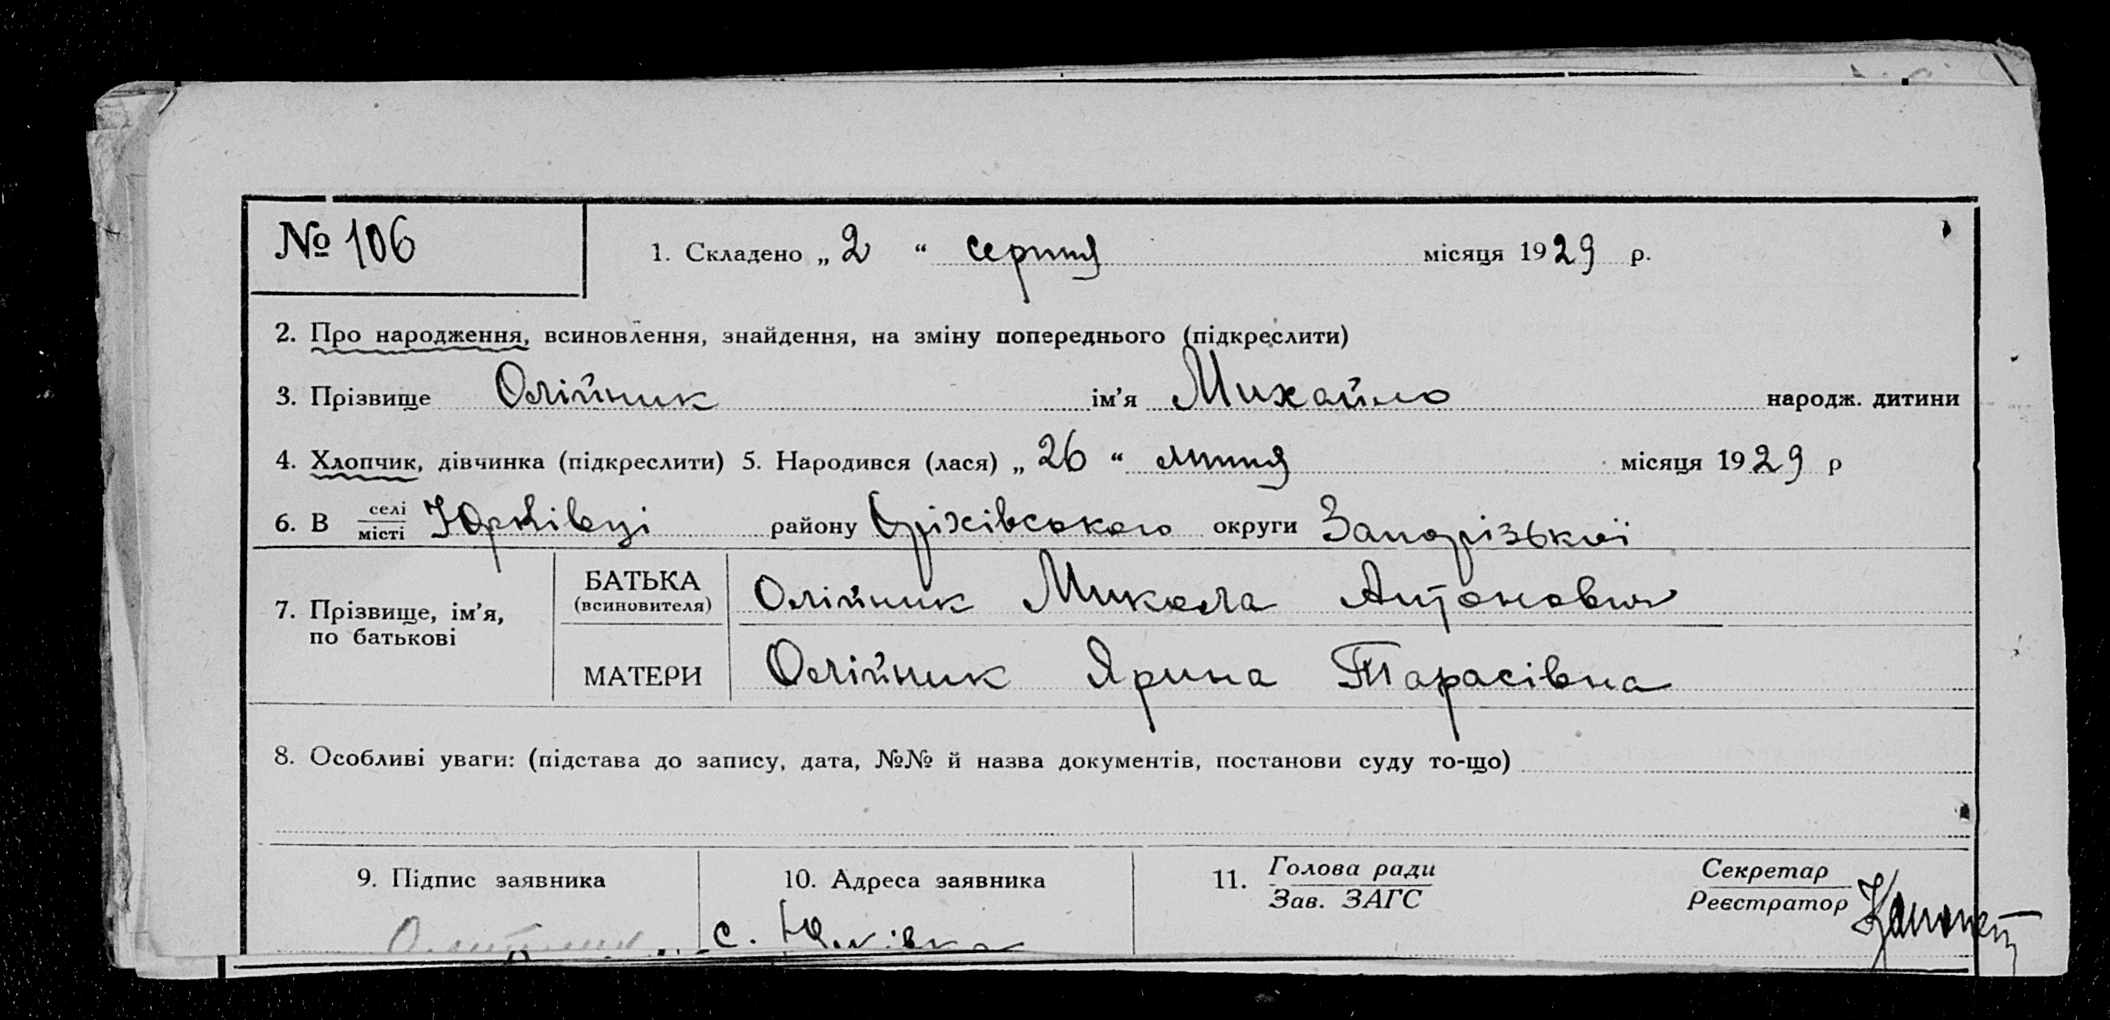 № 106
1. Складено „ 2 “ серпня місяця 1929 р.
2. Про народження, всиновлення, знайдення, на зміну попереднього (підкреслити)
3. Прізвище Олійник ім'я Михайло народж. дитини
4. Хлопчик, дівчинка (підкреслити) 5. Народився (лася) „ 26 “ липня місяця 1929 р
6. В селі місті Юрківці району Оріхівського округи Запорізької
7. Прізвище, ім'я, по батькові
БАТЬКА (всиновителя) Олійник Микола Антонович
МАТЕРИ Олійник Ярина Тарасівна
8. Особливі уваги: (підстава до запису, дата, №№ й назва документів, постанови суду то-що)
9. Підпис заявника
10. Адреса заявника
с. Юрківка
11. Голова ради
Зав. ЗАГС
Секретар
Реєстратор